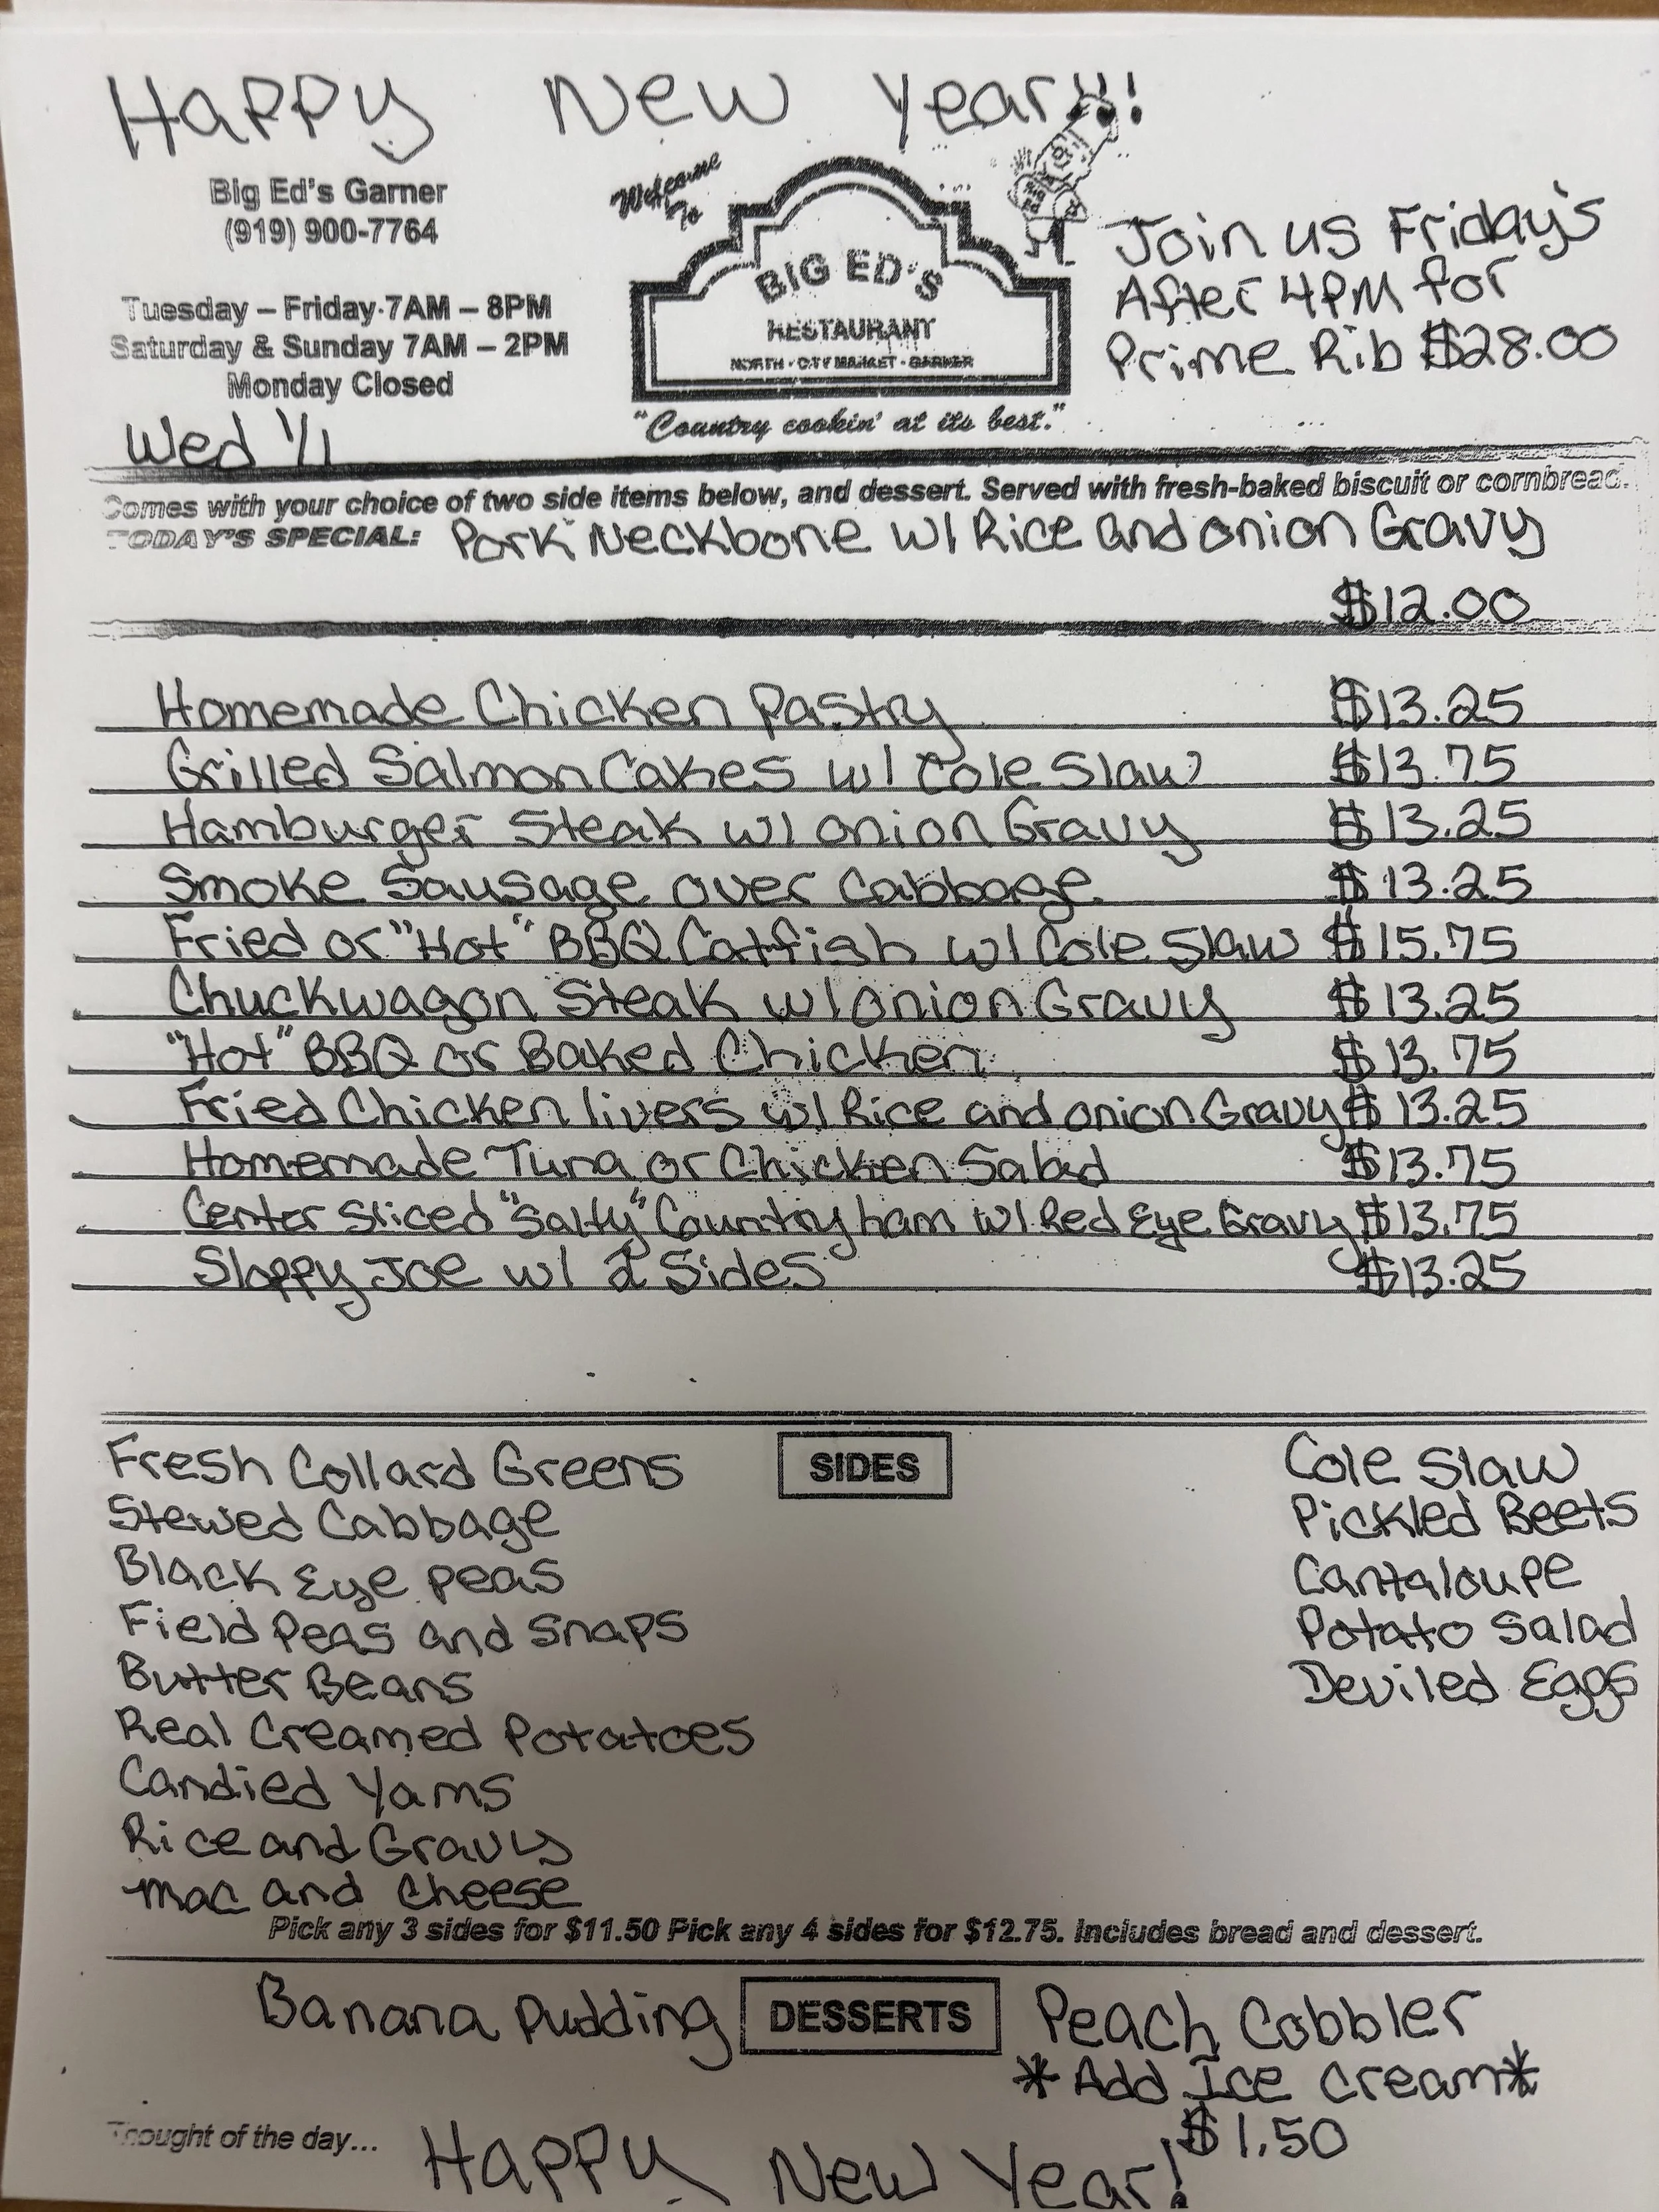 Happy New Year!!!
Big Ed's Garner
(919) 900-7764
Tuesday – Friday 7AM – 8PM
Saturday & Sunday 7AM – 2PM
Monday Closed
Wed 1/1
Welcome
To
BIG ED'S
RESTAURANT
NORTH • CITY MARKET • GARNER
"Country cookin' at its best."
Join us Friday's
After 4PM for
Prime Rib $28.00
Comes with your choice of two side items below, and dessert. Served with fresh-baked biscuit or cornbread.
TODAY'S SPECIAL: Pork Neckbone w/ Rice and onion Gravy
$12.00
Homemade Chicken Pastry $13.25
Grilled Salmon Cakes w/ Cole Slaw $13.75
Hamburger Steak w/ onion Gravy $13.25
Smoke Sausage over Cabbage $13.25
Fried or "Hot" BBQ Catfish w/ Cole Slaw $15.75
Chuckwagon Steak w/ onion Gravy $13.25
"Hot" BBQ or Baked Chicken $13.75
Fried Chicken livers w/ Rice and onion Gravy $13.25
Homemade Tuna or Chicken Salad $13.75
Center Sliced "Salty" Country ham w/ Red Eye Gravy $13.75
Sloppy Joe w/ 2 Sides $13.25
SIDES
Fresh Collard Greens
Stewed Cabbage
Black Eye peas
Field Peas and Snaps
Butter Beans
Real Creamed Potatoes
Candied Yams
Rice and Gravy
Mac and Cheese
Cole Slaw
Pickled Beets
Cantaloupe
Potato Salad
Deviled Eggs
Pick any 3 sides for $11.50 Pick any 4 sides for $12.75. Includes bread and dessert.
Banana Pudding DESSERTS Peach Cobbler
*Add Ice Cream*
$1.50
Thought of the day... Happy New Year!